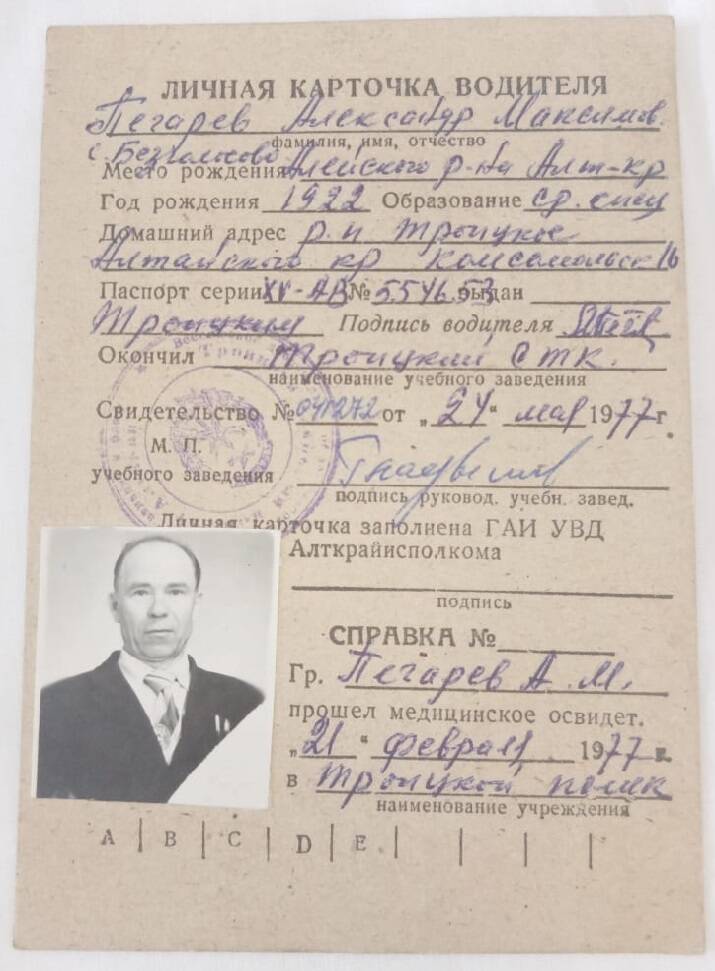 ЛИЧНАЯ КАРТОЧКА ВОДИТЕЛЯ
Пегарев Александр Максимов.
фамилия, имя, отчество
с. Безголосово
Место рождения Алейского р-на Алт-кр
Год рождения 1922 Образование ср. спец
Домашний адрес р.п Троицкое
Алтайского кр Комсомольск 16
Паспорт серии XV-АВ № 554653 выдан
Троицким Подпись водителя
Окончил Троицкий СТК.
наименование учебного заведения
Свидетельство № 041272 от „24" мая 1977 г
М. П.
учебного заведения
подпись руковод. учебн. завед.
Личная карточка заполнена ГАИ УВД
Алткрайисполкома
подпись
СПРАВКА №
Гр. Пегарев А. М.
прошел медицинское освидет.
„21" февраля 1977 г.
в Троицкой полик
наименование учреждения
A B C D E